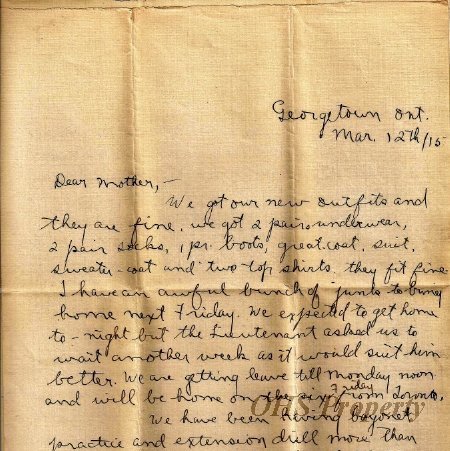 Georgetown Ont.
Mar. 12th/15
Dear Mother,—
We got our new outfits and
they are fine. we got 2 pairs underwear,
2 pair socks, 1 pr. boots, great coat, suit,
sweater-coat and two top shirts. they fit fine
I have an awful bunch of junk to bring
home next Friday. We expected to get home
to-night but the Lieutenant asked us to
wait another week as it would suit him
better. We are getting leave till monday noon
Friday
and will be home on the six from Toronto.
OHS Property
We have been having bayonet
practice and extension drill more than